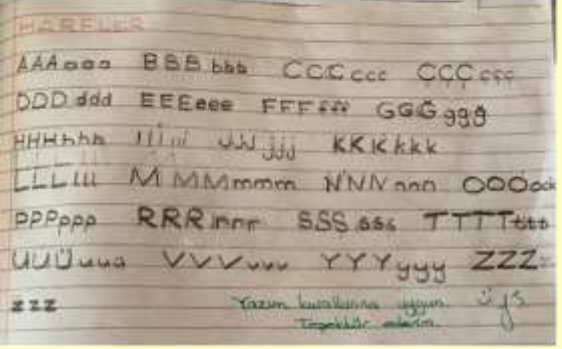 HARFLER
AAAaaa BBBbbb CCCccc ÇÇÇççç
DDDddd EEEeee FFFfff GGGggg
HHHhhh IIIııı JJJjjj KKKkkk
LLLlll MMMMmmm NNNnnn OOOooo
PPPppp RRRrrr SSSsss TTTTttt
UUUuuu VVVvvv YYYyyy ZZZ
zzz
Yazım kurallarına uygun.
Teşekkür ederim.